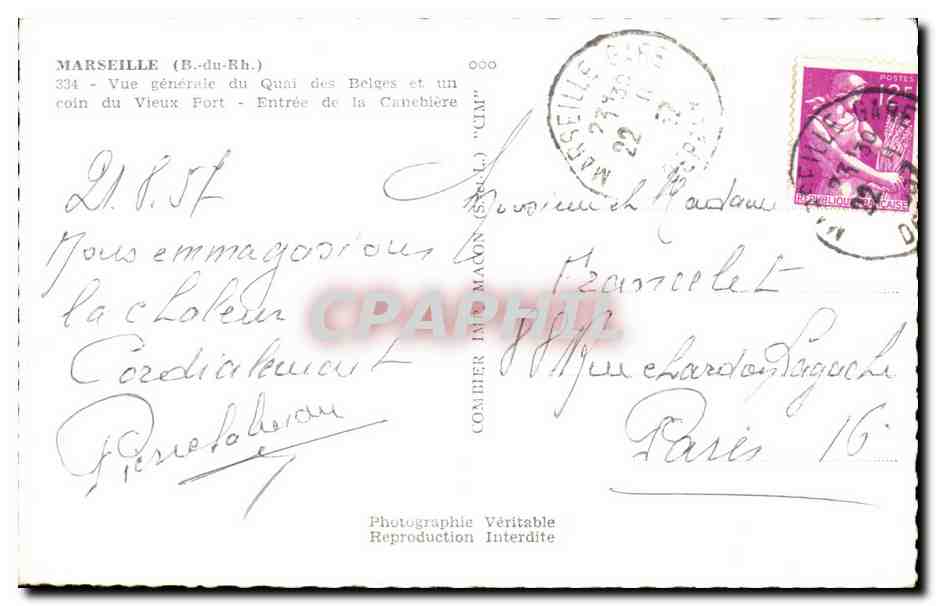 MARSEILLE (B.-du-Rh.)
334 - Vue générale du Quai des Belges et un
coin du Vieux Port - Entrée de la Canebière
21.8.57
Nous emmagasinons
la chaleur
Cordialement
COMBIER IMP. MACON (S.-et-L.) "CIM"
MARSEILLE GARE
23H30
22
POSTES
12F
REPUBLIQUE FRANÇAISE
MARSEILLE GARE
23H30
22
Monsieur et Madame
Francelet
Rue Chardon Lagache
Paris 16
CPAPHIL
Photographie Véritable
Reproduction Interdite